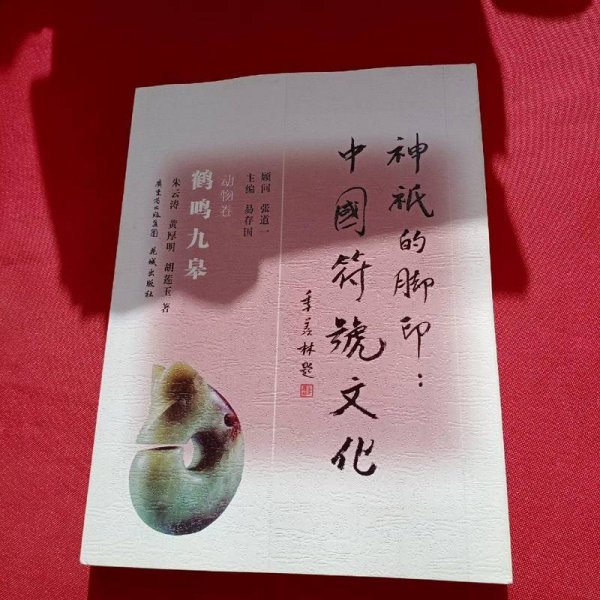 神祇的脚印：
中國符號文化
季羡林題
顾问 张道一
主编 易存国
动物卷
鹤鸣九皋
朱云涛 黄厚明 胡莲玉 著
广东省出版集团 花城出版社